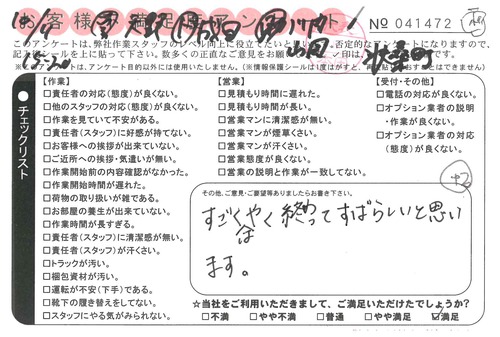 お客様満足度アンケート No 041472
このアンケートは、弊社作業スタッフのレベル向上に役立てたいと
※このアンケートは、アンケート目的以外には使用いたしません。(※情報保護シールは1度はがすと、
チェックリスト
【作業】
□責任者の対応(態度)が良くない。
□他のスタッフの対応(態度)が良くない。
□作業を見ていて不安がある。
□責任者(スタッフ)に好感が持てない。
□お客様への挨拶が出来ていない。
□ご近所への挨拶・気遣いが無い。
□作業開始前の内容確認がなかった。
□作業開始時間が遅れた。
□荷物の取り扱いが雑である。
□お部屋の養生が出来ていない。
□作業時間が長すぎる。
□責任者(スタッフ)に清潔感が無い。
□責任者(スタッフ)が汗くさい。
□トラックが汚い。
□梱包資材が汚い。
□運転が不安(下手)である。
□靴下の履き替えをしてない。
□スタッフにやる気がみられない。
【営業】
□見積もり時間に遅れた。
□見積もり時間が長い。
□営業マンに清潔感が無い。
□営業マンが煙草くさい。
□営業マンが汗くさい。
□営業態度が良くない。
□営業の説明と作業が一致してない。
【受付・その他】
□電話の対応が良くない。
□オプション業者の説明
・作業が良くない。
□オプション業者の対応
(態度)が良くない。
その他、ご意見・ご要望等ありましたらお書き下さい。
すごくはやく終わってすばらしいと思い
ます。
☆当社をご利用いただきまして、ご満足いただけたでしょうか?
□不満 □やや不満 □普通 □やや満足 ☑満足